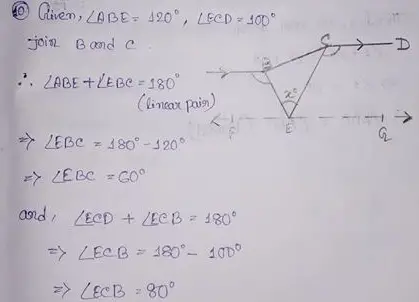 10 Given, ∠ABE = 120°, ∠ECD = 100°
join B and C.
∴ ∠ABE + ∠EBC = 180°
(linear pair)
⇒ ∠EBC = 180° - 120°
⇒ ∠EBC = 60°
and, ∠ECD + ∠ECB = 180°
⇒ ∠ECB = 180° - 100°
⇒ ∠ECB = 80°
C
D
B
x°
F
E
G